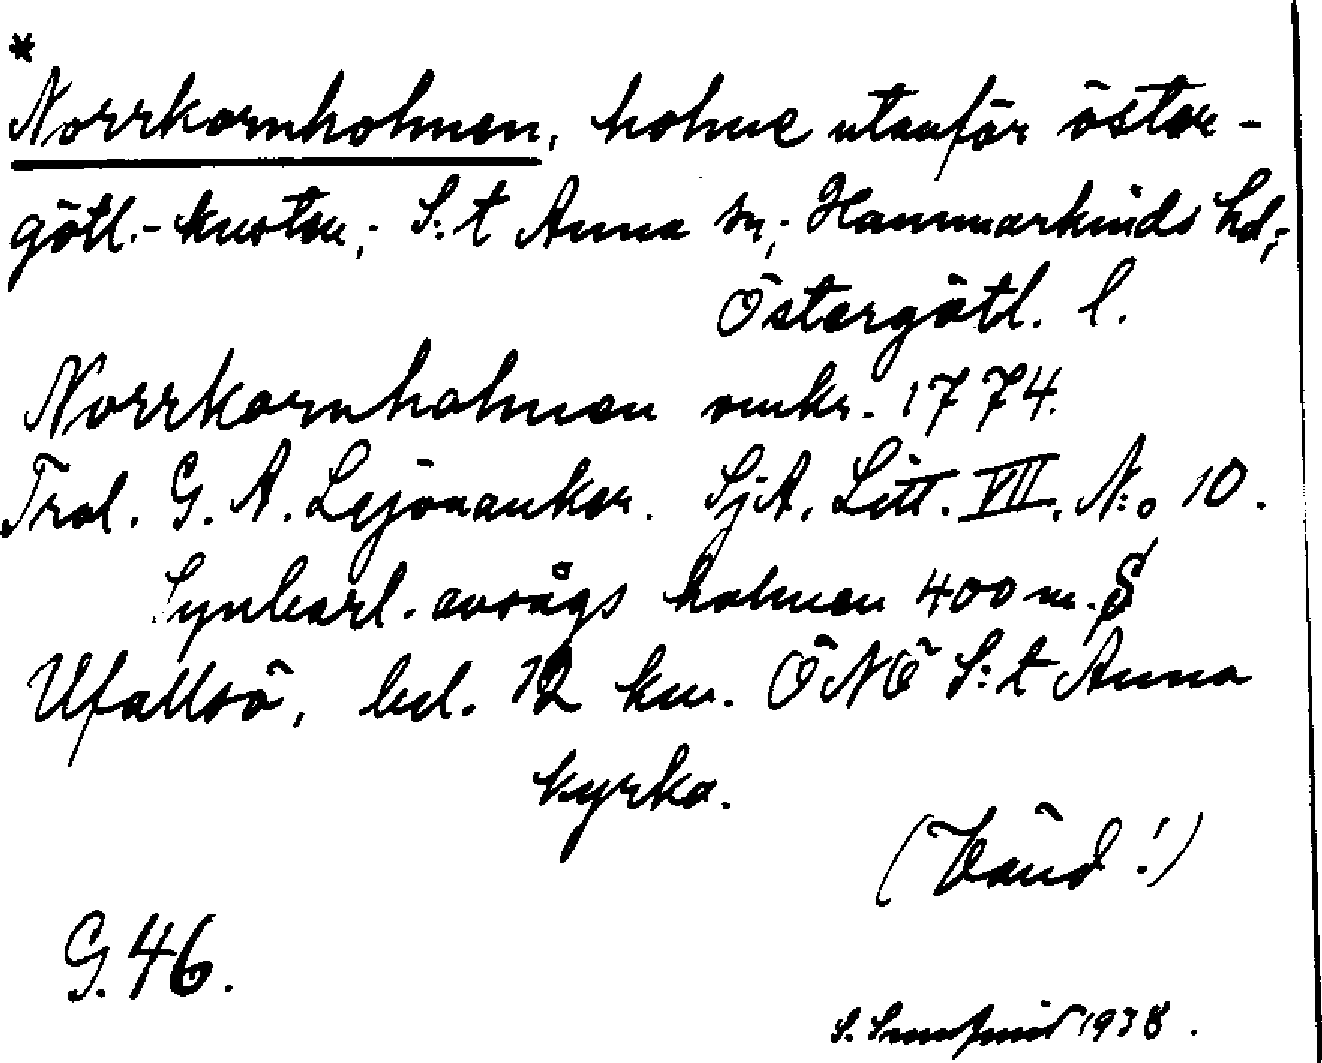 *
Norrkornholmen, holme utanför öster-
götl.-kusten,- S:t Anna sn,- Hammarkinds hd,-
Östergötl. l.
Norrkornholmen omkr. 1774.
Trol. G. A. Lejonanker. SjA. Litt. VII. N:o 10.
Synbarl. avsågs holmen 400 m. S
Ufallsö, bel. 12 km. ÖNÖ S:t Anna
kyrka.
(Vänd!)
G. 46.
S. 1938.